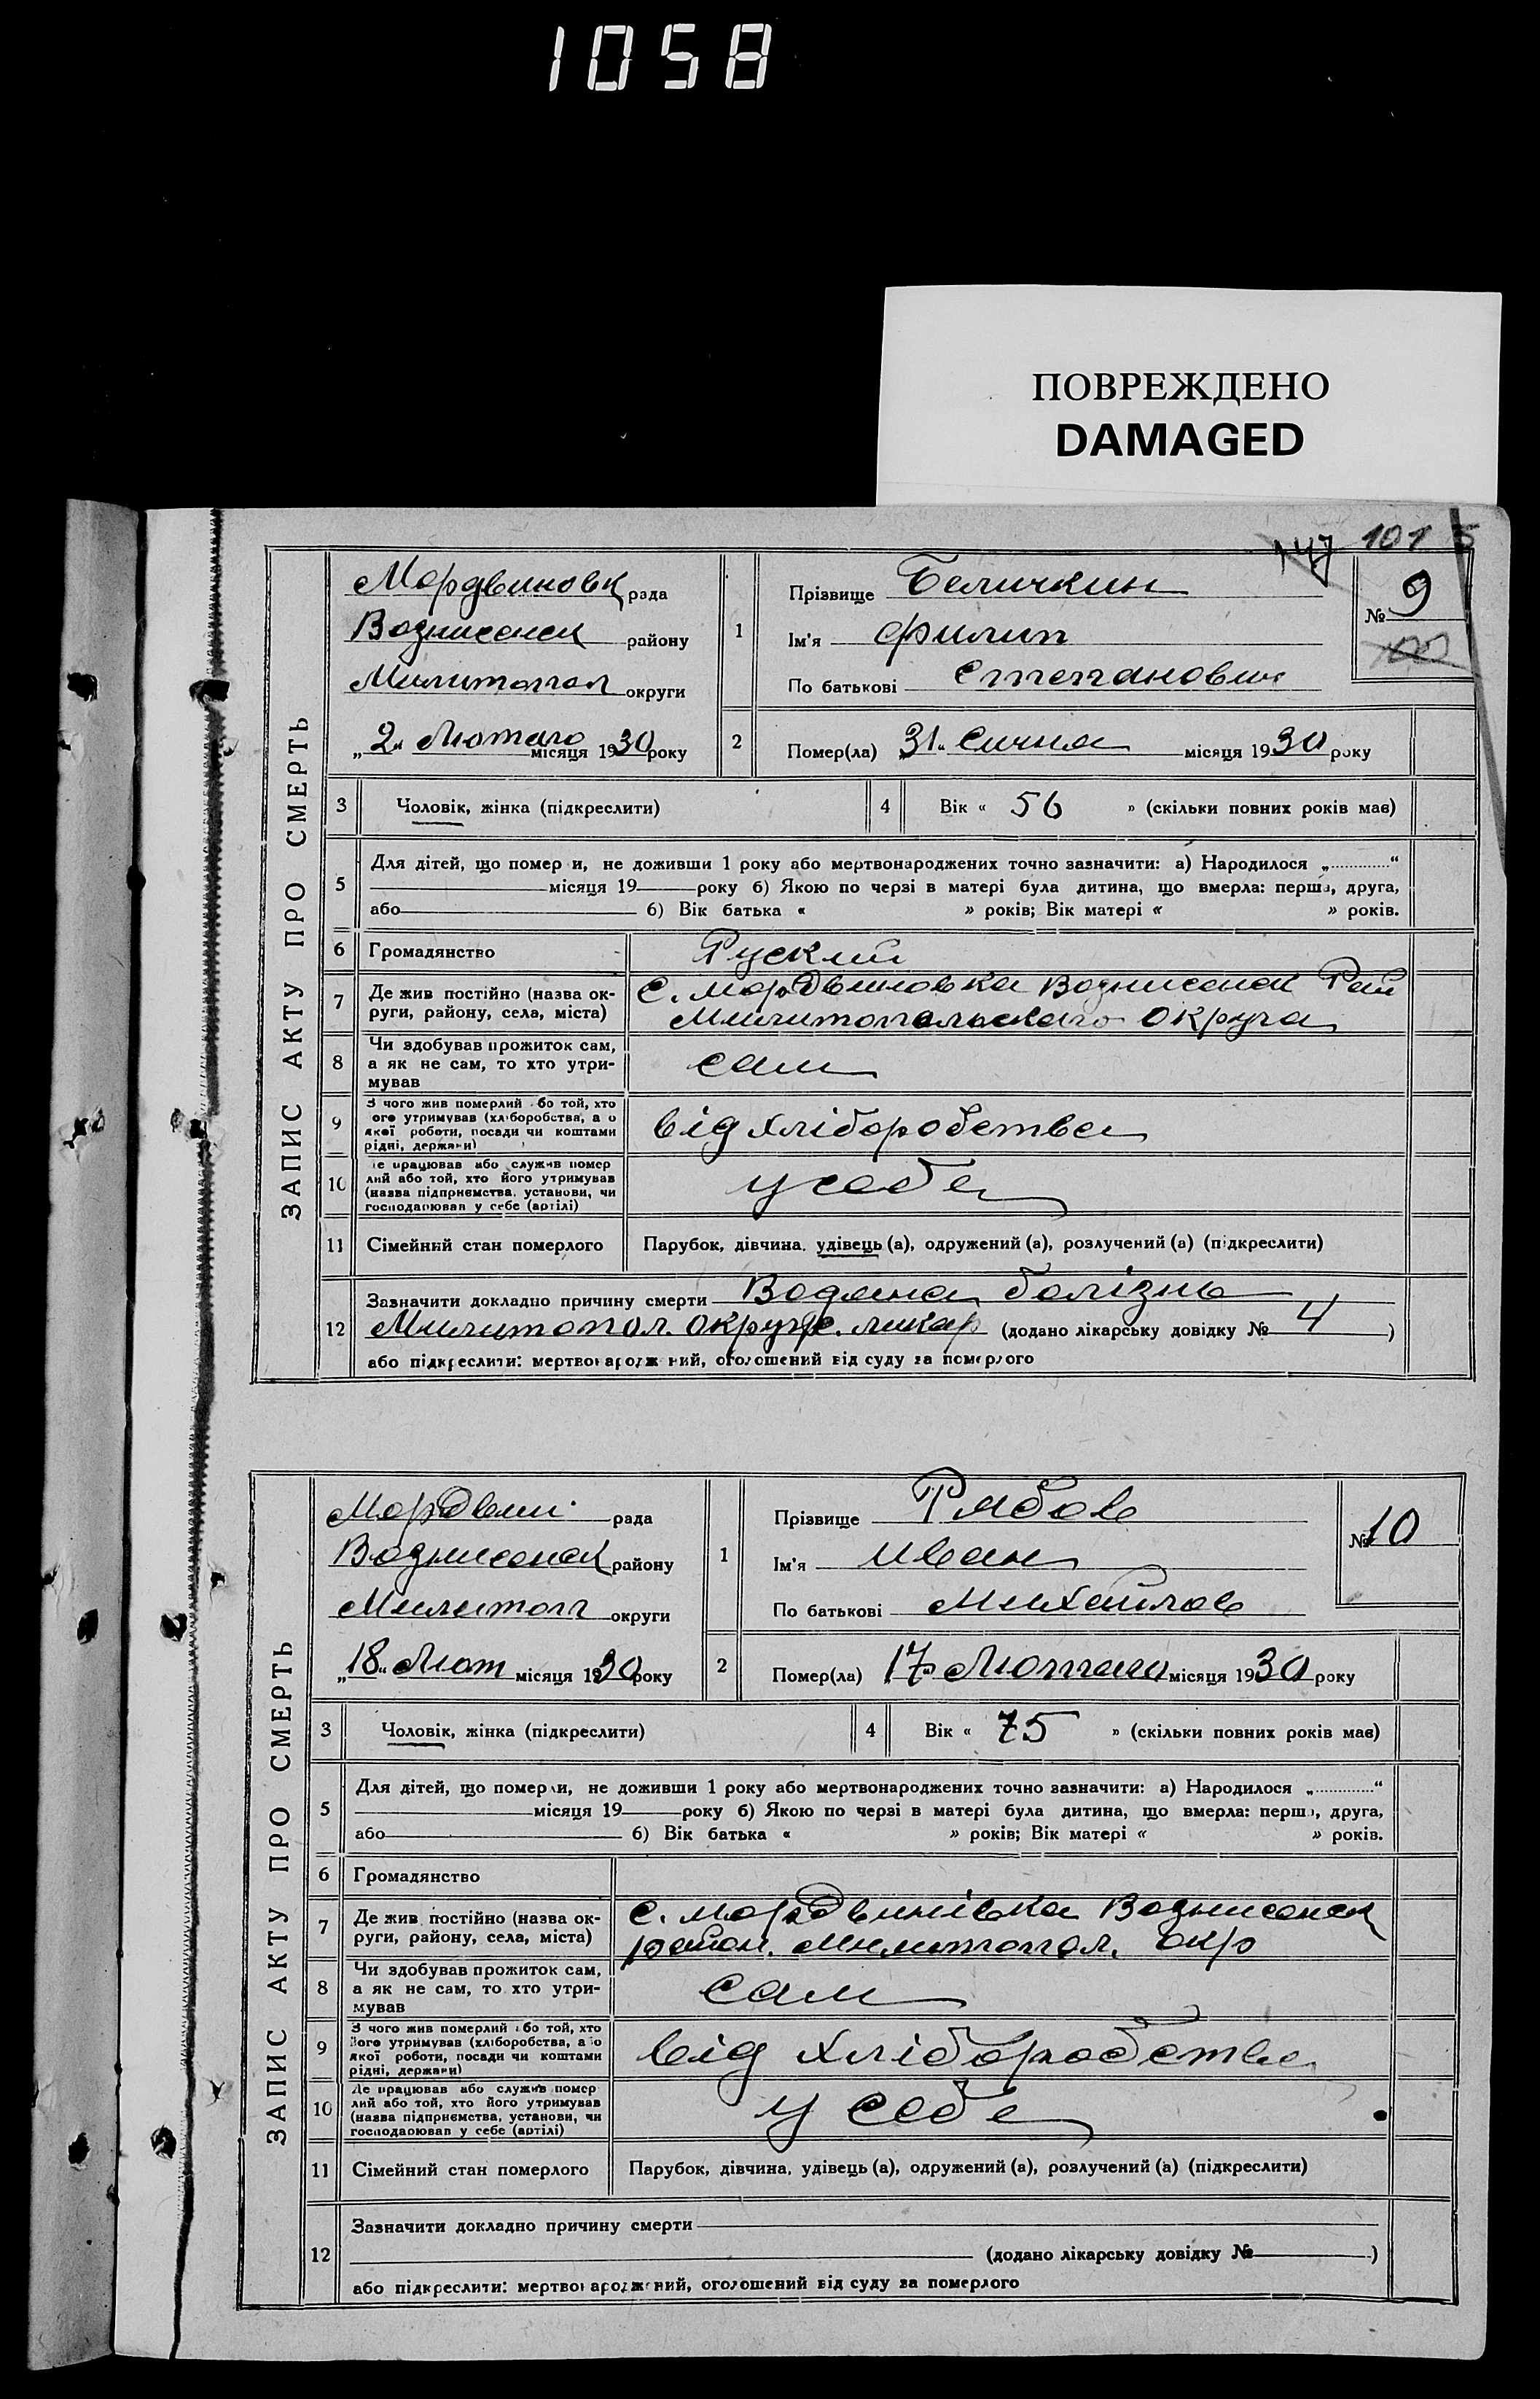 1058
ПОВРЕЖДЕНО
DAMAGED
147 101 5
ЗАПИС АКТУ ПРО СМЕРТЬ
Мордвиновк рада
Вознисенск району
Милитопол округи
„2“ Лютаго місяця 1930 року
1
Прізвище Беличкин
Ім'я Филип
По батькові Степанович
№ 9
100
2
Помер(ла) 31 Сичня місяця 1930 року
3 Чоловік, жінка (підкреслити)
4 Вік « 56 » (скільки повних років має)
5 Для дітей, що померли, не доживши 1 року або мертвонароджених точно зазначити: а) Народилося „ “
місяця 19 року б) Якою по черзі в матері була дитина, що вмерла: перша, друга,
або б) Вік батька « » років; Вік матері « » років.
6 Громадянство Руский
7 Де жив постійно (назва округи, району, села, міста) С. Мордвиновка Вознисенск Рай
Милитопольскаго Округа
8 Чи здобував прожиток сам,
а як не сам, то хто утри-
мував
сам
9 З чого жив померлий або той, хто
його утримував (хліборобства, або
якої роботи, посади чи коштами
рідні, держави)
від хліборобства
10 Де працював або служив помер
лий або той, хто його утримував
(назва підприємства, установи, чи
господарював у себе (артілі)
у себе
11 Сімейний стан померлого Парубок, дівчина, удівець (а), одружений (а), розлучений (а) (підкреслити)
12 Зазначити докладно причину смерти Водяна болізнь
Милитопол. окруж. ликар (додано лікарську довідку № 4 )
або підкреслити: мертвонароджений, оголошений від суду за померлого
ЗАПИС АКТУ ПРО СМЕРТЬ
Мордвин рада
Вознисенск району
Милитоп округи
„18“ Лют місяця 1930 року
1
Прізвище Рябов
Ім'я Иван
По батькові Михайлов
№ 10
2
Помер(ла) 17 Лютаго місяця 1930 року
3 Чоловік, жінка (підкреслити)
4 Вік « 75 » (скільки повних років має)
5 Для дітей, що померли, не доживши 1 року або мертвонароджених точно зазначити: а) Народилося „ “
місяця 19 року б) Якою по черзі в матері була дитина, що вмерла: перша, друга,
або б) Вік батька « » років; Вік матері « » років.
6 Громадянство
7 Де жив постійно (назва округи, району, села, міста) С. Мордвинівка Вознисенск
район. Милитопол. окр
8 Чи здобував прожиток сам,
а як не сам, то хто утри-
мував
сам
9 З чого жив померлий або той, хто
його утримував (хліборобства, або
якої роботи, посади чи коштами
рідні, держави)
від хліборобства
10 Де працював або служив помер
лий або той, хто його утримував
(назва підприємства, установи, чи
господарював у себе (артілі)
у себе
11 Сімейний стан померлого Парубок, дівчина, удівець (а), одружений (а), розлучений (а) (підкреслити)
12 Зазначити докладно причину смерти
(додано лікарську довідку № )
або підкреслити: мертвонароджений, оголошений від суду за померлого